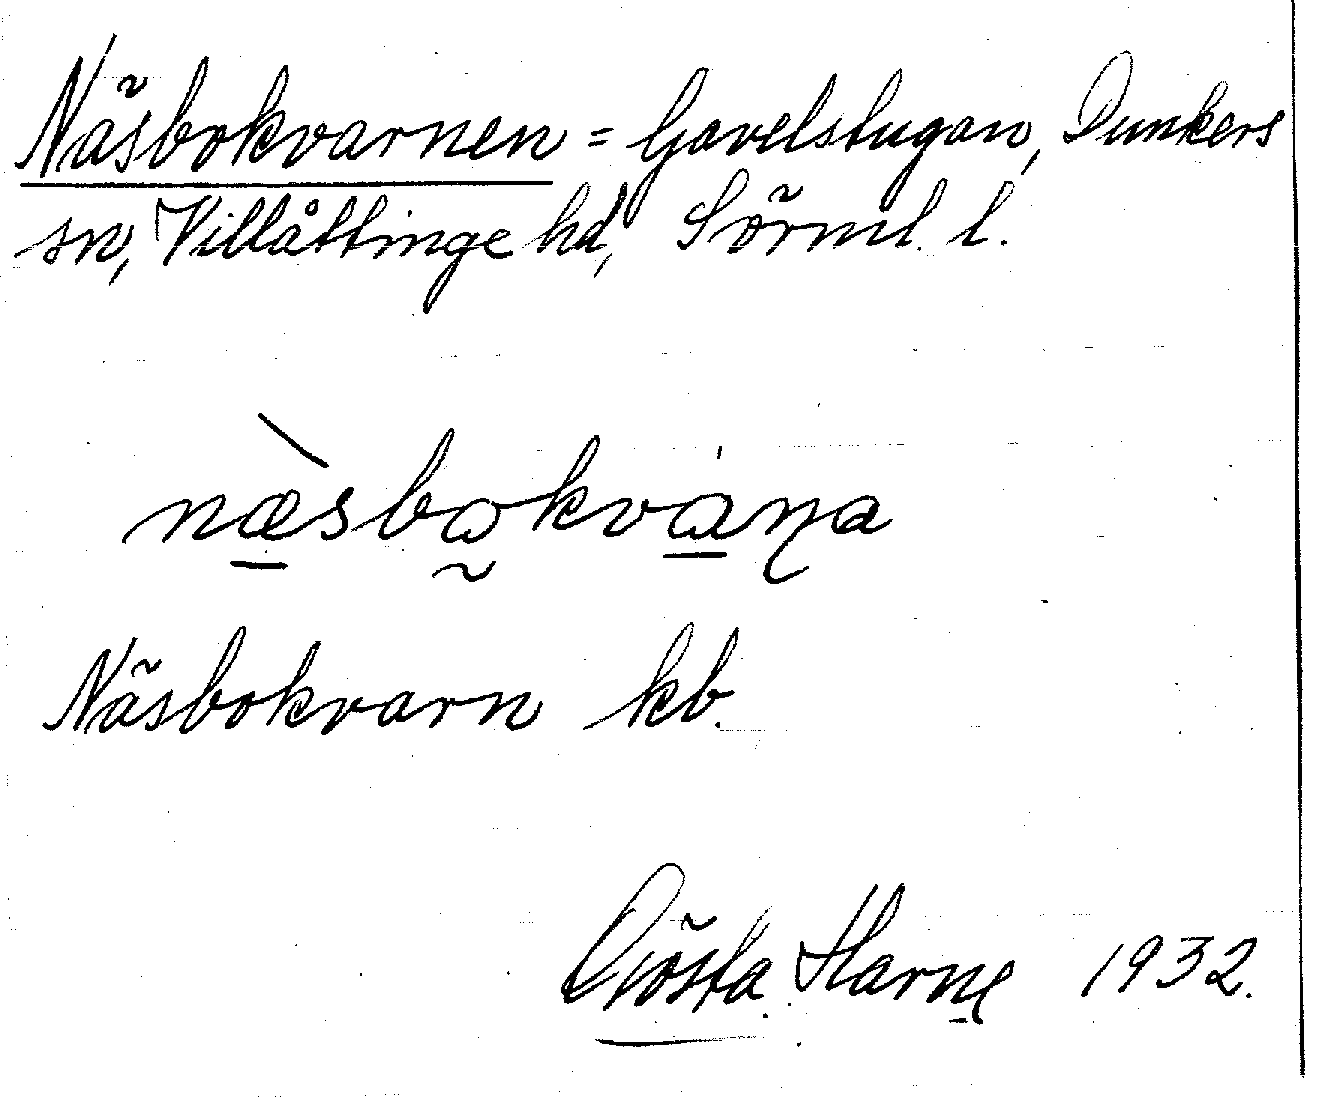 Näsbokvarnen = Gavelstugan, Dunkers
sn, Villåttinge hd, Sörml. l.
næ̀sbo̰kvȧ̱ɳa
Näsbokvarn kb.
Gösta Harne 1932.